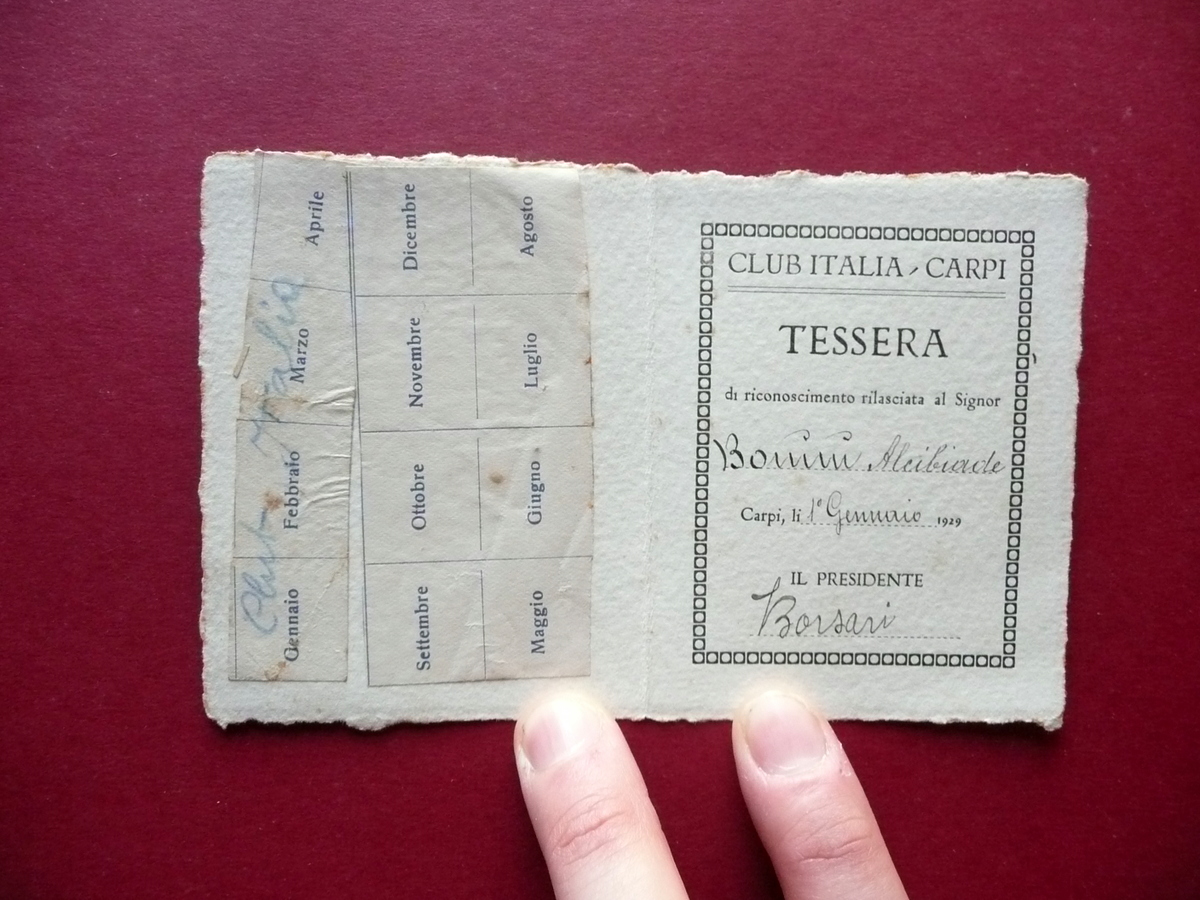 Aprile
Marzo
Febbraio
Gennaio
Club Italia
Dicembre
Novembre
Ottobre
Settembre
Agosto
Luglio
Giugno
Maggio
CLUB ITALIA - CARPI
TESSERA
di riconoscimento rilasciata al Signor
Alcibiade
Carpi, li 1° Gennaio 1929
IL PRESIDENTE
Borsari